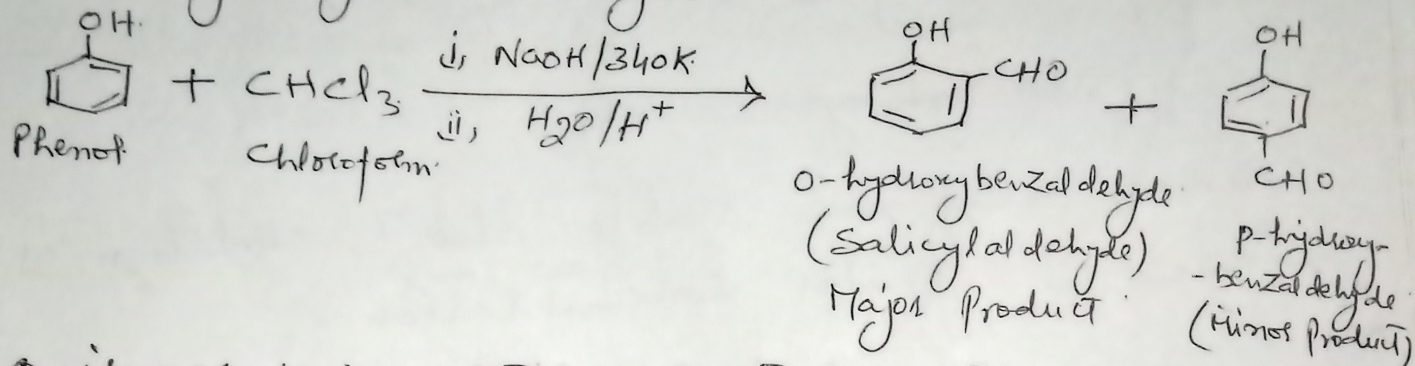 OH.
OH
OH
i, NaOH/340K.
+ CHCl3
CHO
+
ii, H2O/H+
Phenol.
Chloroform.
CHO
o-hydroxybenzaldehyde
(Salicylaldehyde)
Major Product
p-hydroxy-
-benzaldehyde
(Minor Product)